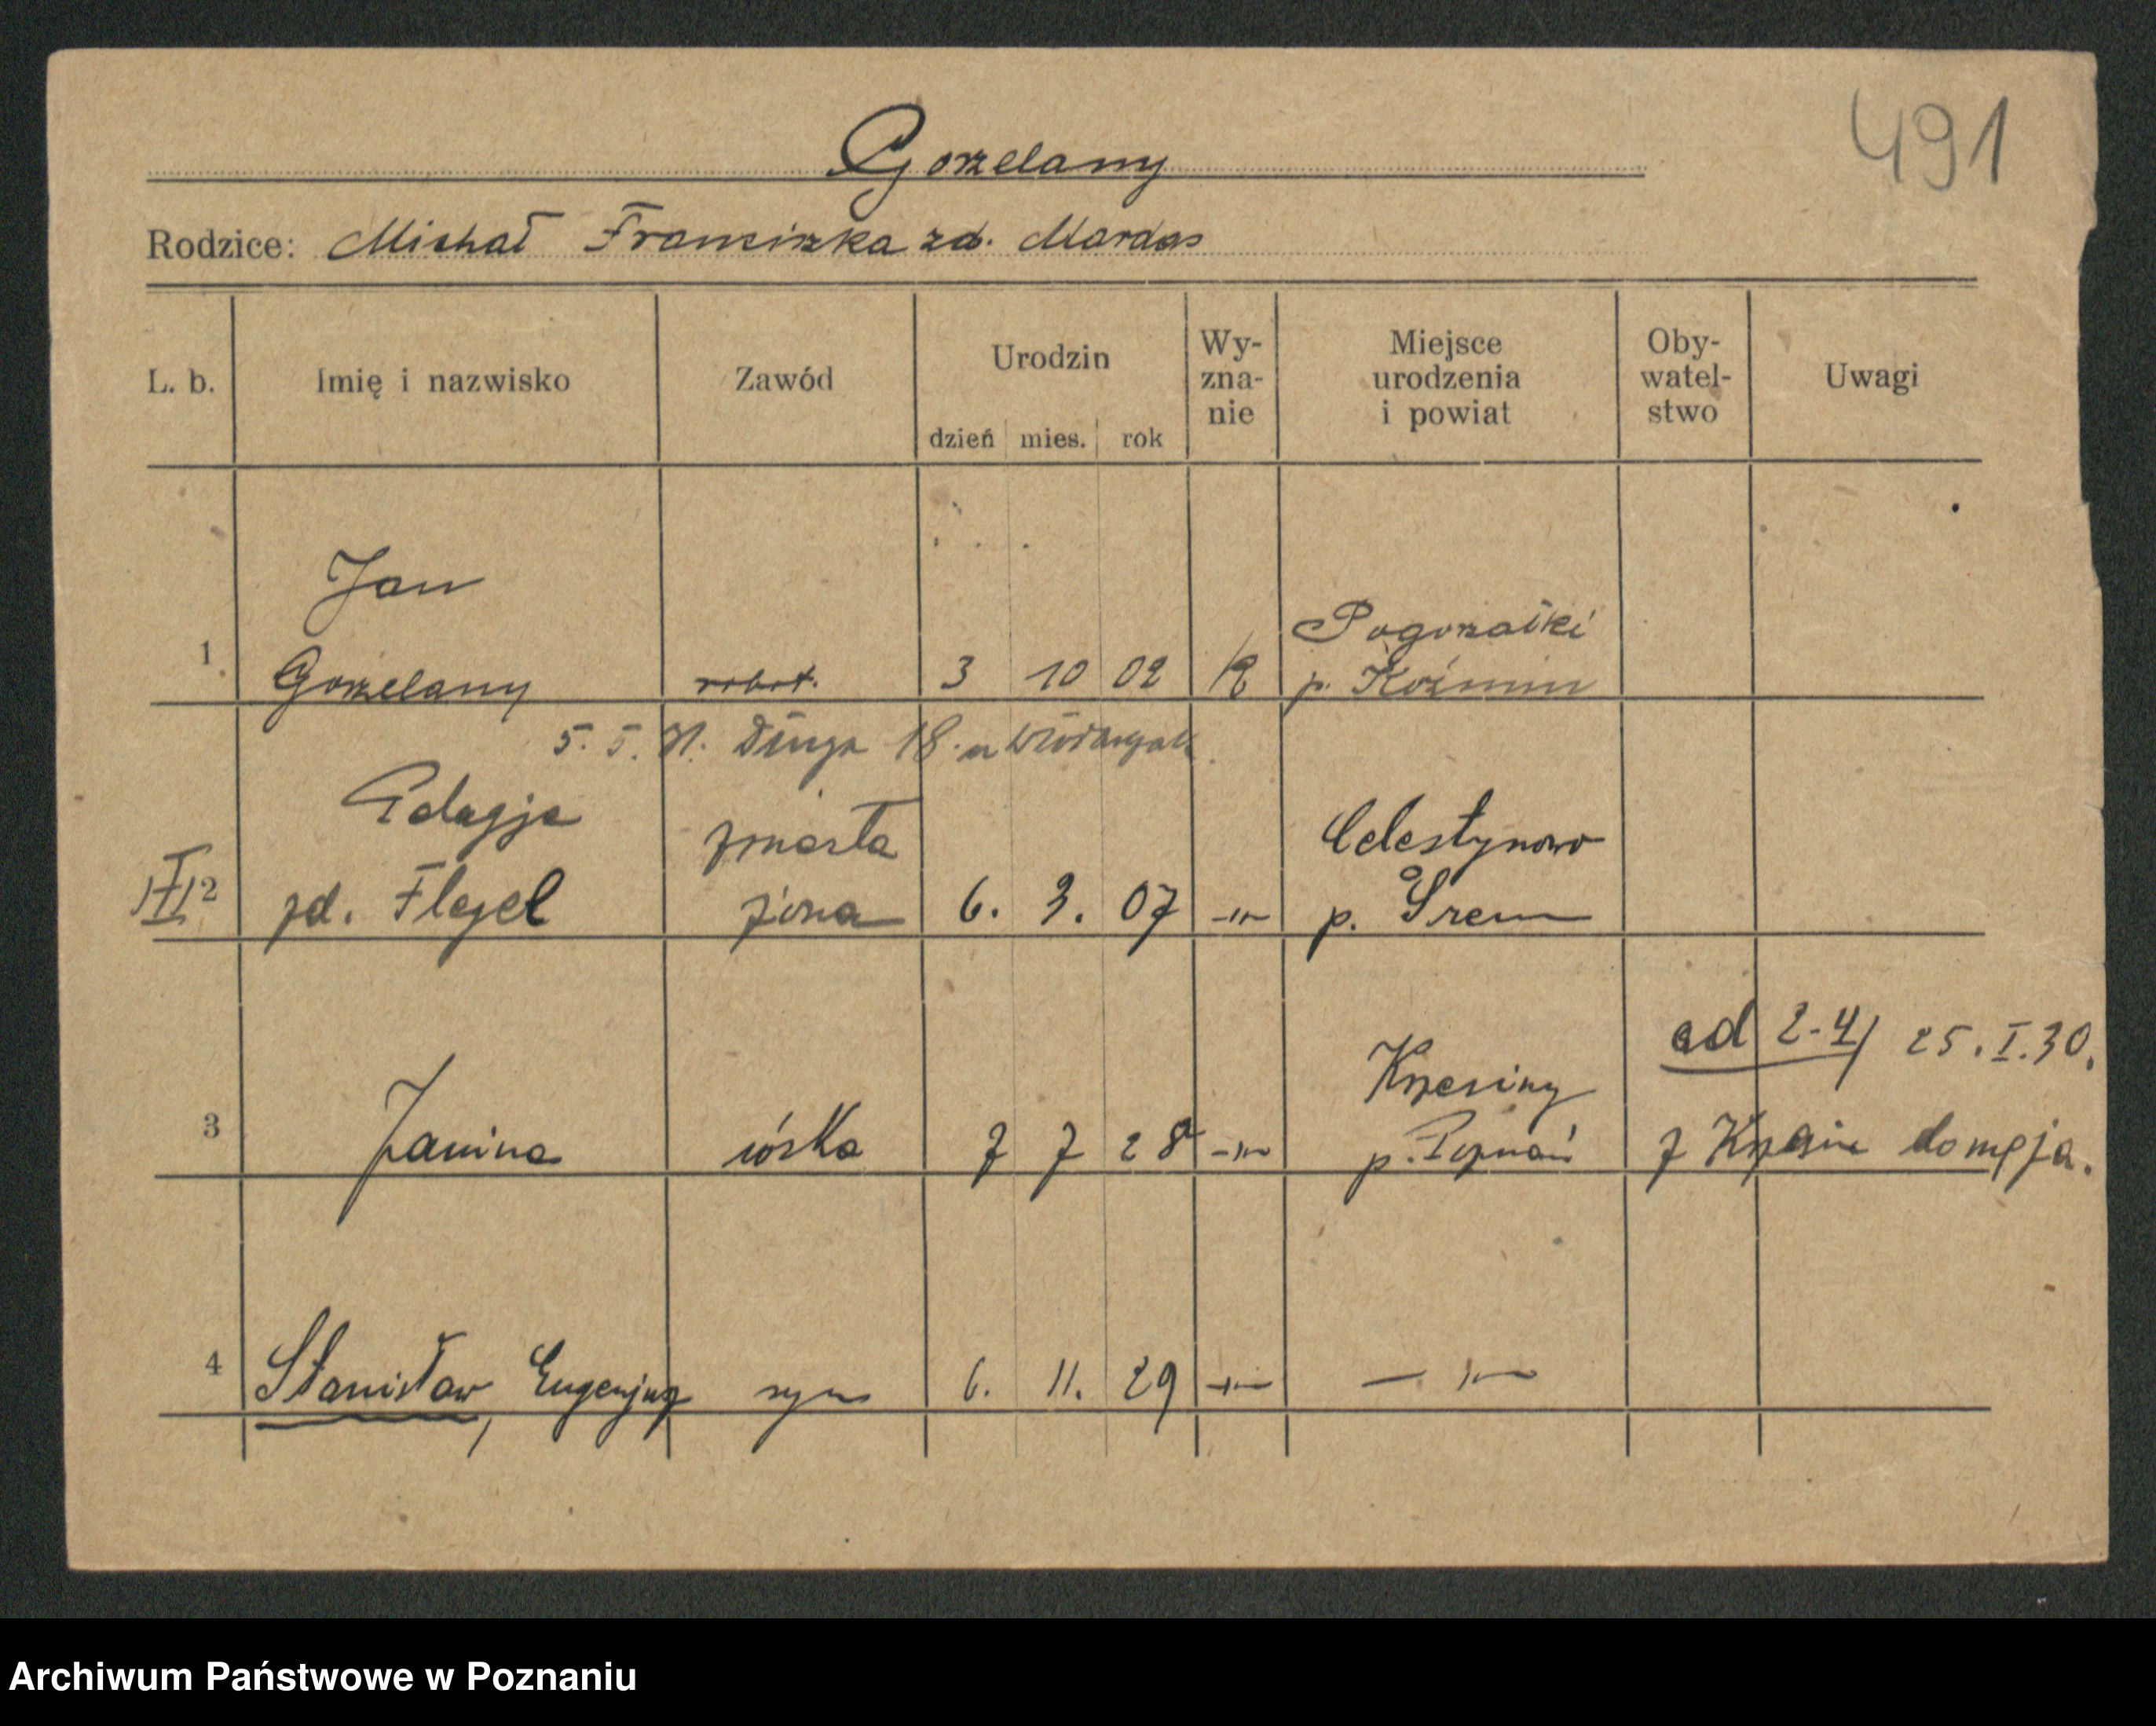 491
Gorzelany
Rodzice: Michał Franciszka zd. Mardas
L. b. Imię i nazwisko Zawód Urodzin dzień mies. rok Wy-zna-nie Miejsce urodzenia i powiat Oby-watel-stwo Uwagi
Jan
1 Gorzelany robot. 3 10 02 R Pogorzałki p. Koźmin
5. 5. 31. Długa 18. u
Pelagja zmarła Celestynowo
2 zd. Flegel żona 6. 3. 07 -"- p. Śrem
ad 2-4/ 25. I. 30.
Krzesiny
3 Janina córka 7 7 28 -"- p. Poznań z Krzesin
4 Stanisław, Eugenjusz syn 6. 11. 29 -"- - " -
Archiwum Państwowe w Poznaniu